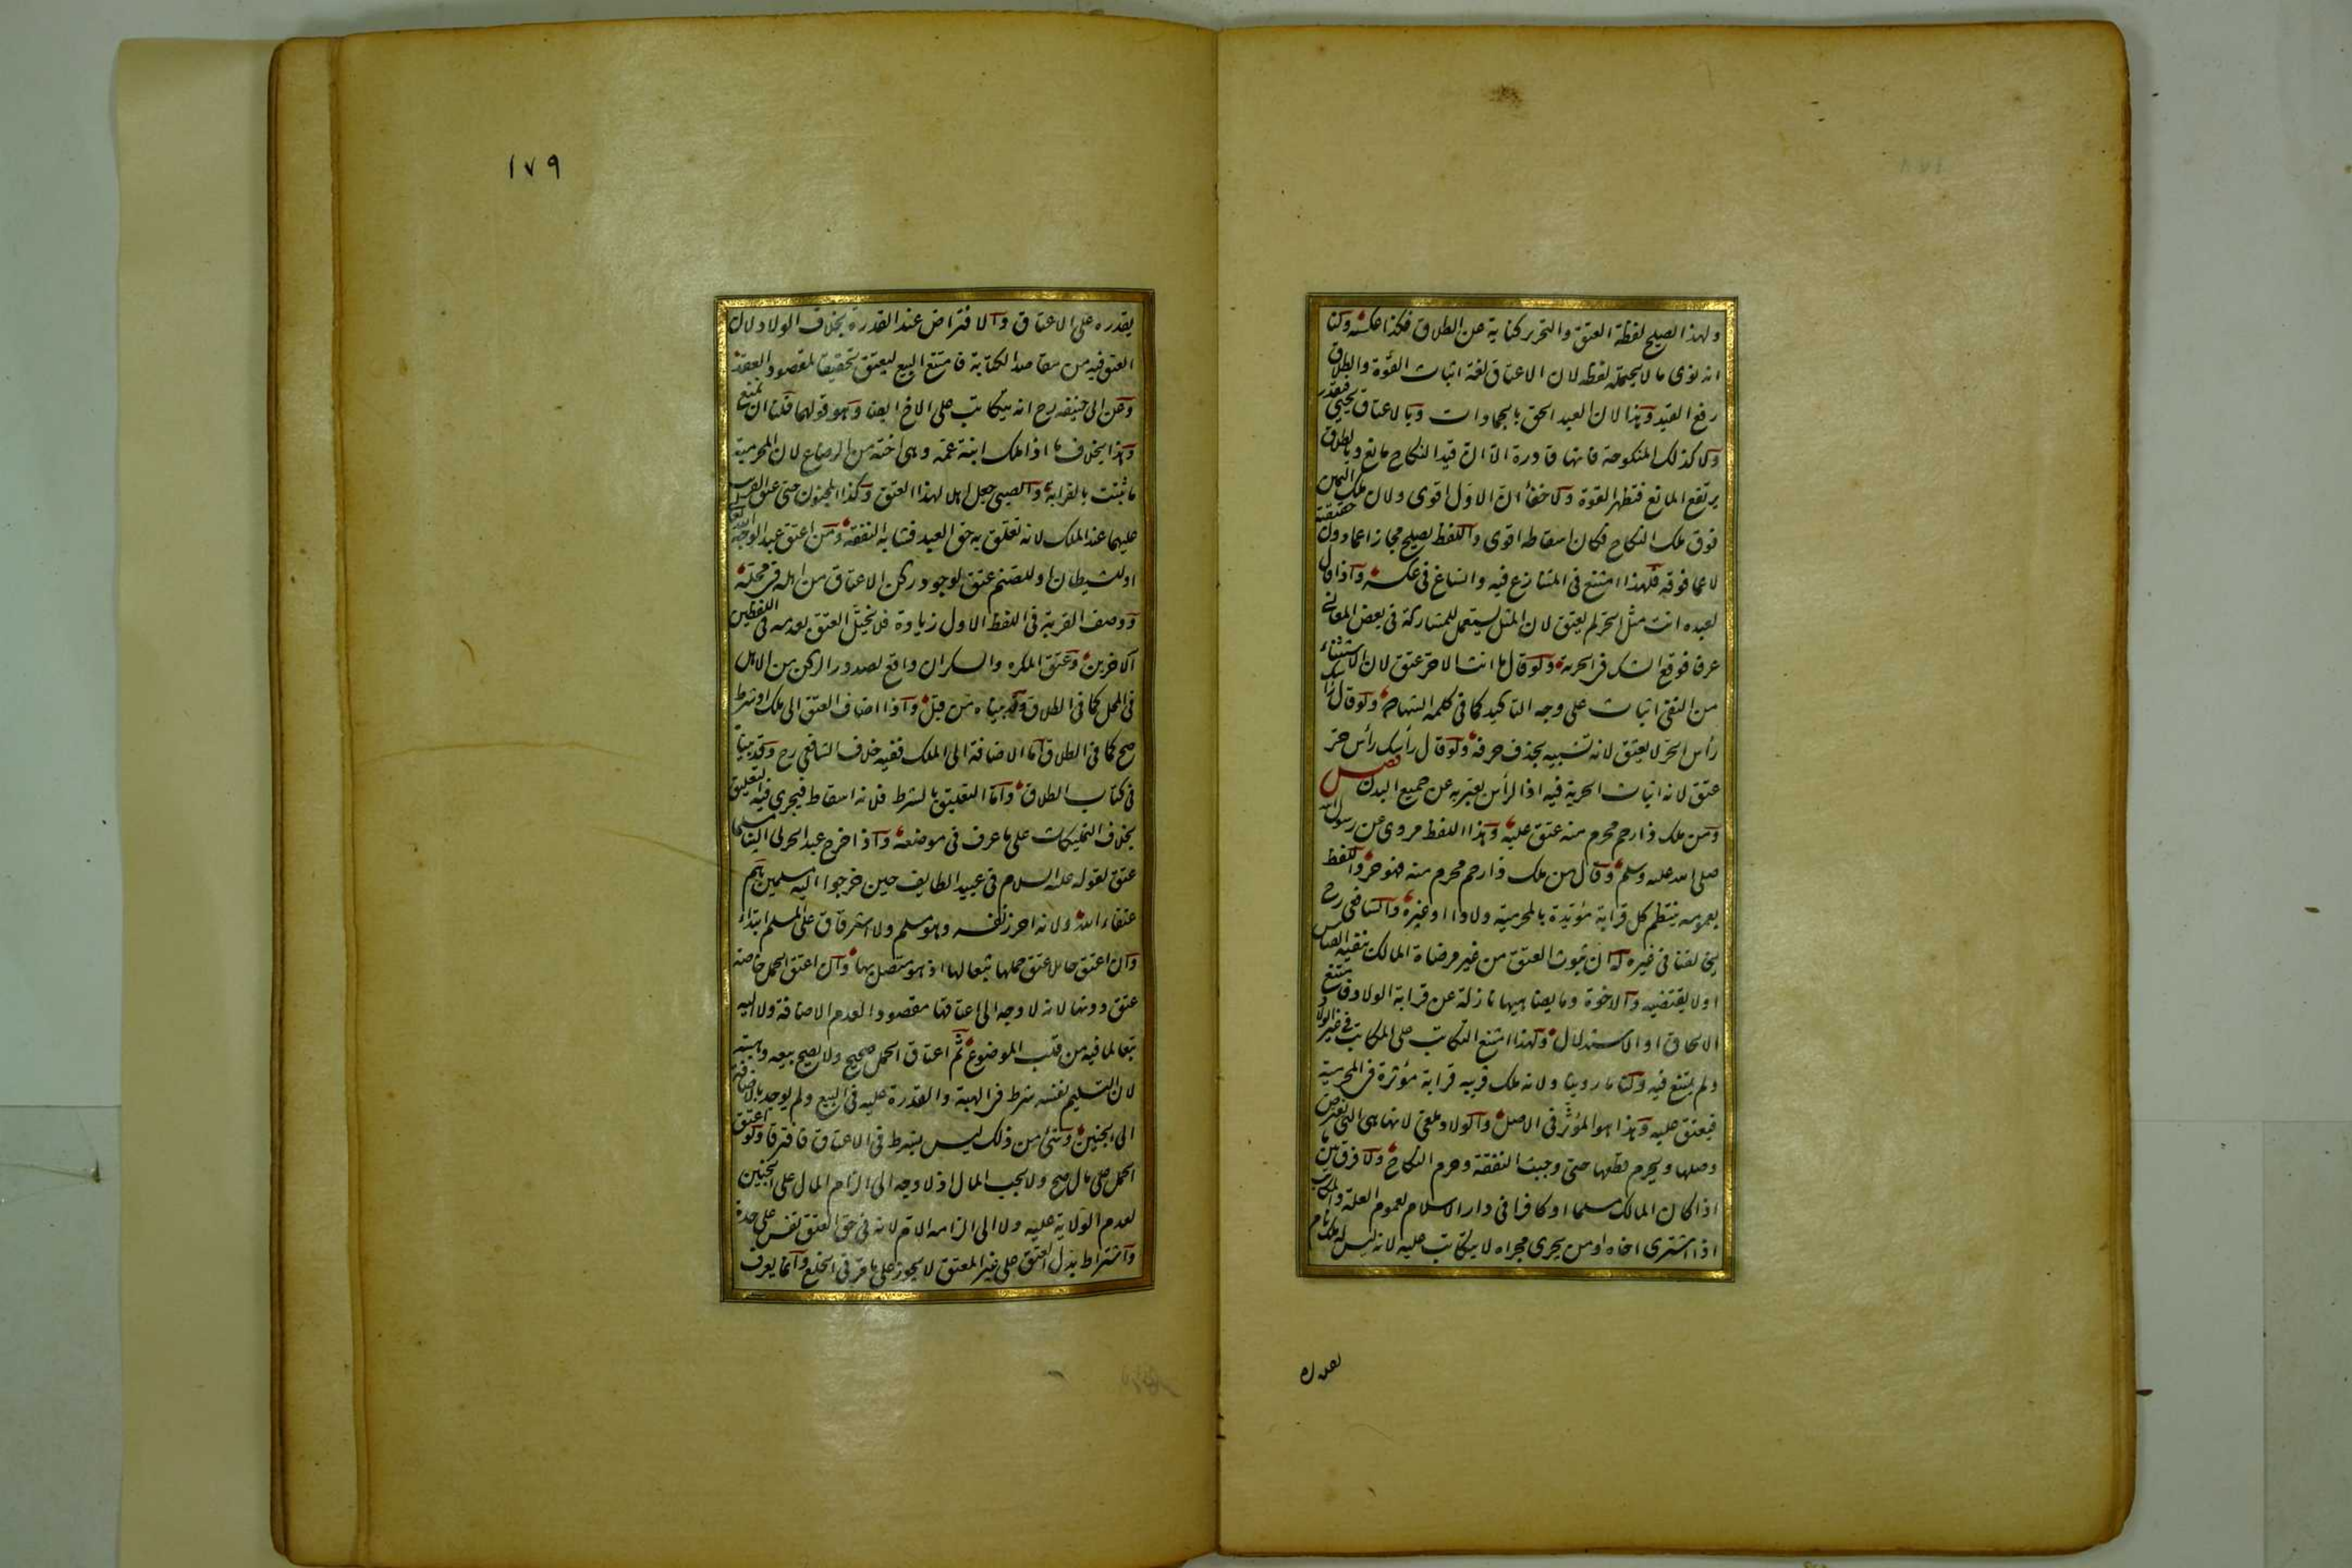 ولهذا يصلح لفظة العتق والتحرير كناية عن الطلاق فكذا عكسه ولنا
انه نوى ما لا يحتمله لفظه لان الاعتاق لغة اثبات القوة والطلاق
رفع القيد وهذا لان العبد الحق بالجمادات وبالاعتاق يحيى فيقدر
ولا كذلك المنكوحة فانها قادرة الا ان قيد النكاح مانع وبالطلاق
يرتفع المانع فتظهر القوة ولا خفأ ان الاول اقوى ولان ملك اليمين
فوق ملك النكاح فكان اسقاطه اقوى واللفظ يصلح مجازا عما دون حقيقته
لا عما فوقه فلهذا امتنع في المتنازع فيه وانساغ في عكسه واذا قال
لعبده انت مثل الحر لم يعتق لان المثل يستعمل للمشاركة في بعض المعاني
عرفا فوقع الشك في الحرية ولو قال ما انت الا حر عتق لان الاستثناء
من النفي اثبات على وجه التاكيد كما في كلمة الشهادة ولو قال رأسك
رأس الحر لا يعتق لانه تشبيه بحذف حرفه ولو قال رأسك رأس حر
عتق لانه اثبات الحرية فيه اذ الرأس يعبر به عن جميع البدن فصل
ومن ملك ذا رحم محرم منه عتق عليه وهذا اللفظ مروى عن رسول الله
صلى الله عليه وسلم وقال من ملك ذا رحم محرم منه فهو حر واللفظ
بعمومه ينتظم كل قرابة مؤبدة بالمحرمية ولادا او غيره والشافعي رح
يخالفنا في غيره له ان ثبوت العتق من غير مرضاة المالك ينفيه القياس
او لا يقتضيه والاخوة وما يضاهيها نازلة عن قرابة الولاد فامتنع
الالحاق او الاستدلال ولهذا امتنع التكاتب على المكاتب في غير الولاد
ولم يمتنع فيه ولنا ما روينا ولانه ملك قريبه قرابة مؤثرة في المحرمية
فيعتق عليه وهذا هو المؤثر في الاصل والولاد ملغى لانها هي التي يفترض
وصلها ويحرم قطعها حتى وجبت النفقة وحرم النكاح ولا فرق بين ما
اذا كان المالك مسلما او كافرا في دار الاسلام لعموم العلة والمكاتب
اذا اشترى اخاه او من يجرى مجراه لا يتكاتب عليه لانه ليس له ملك تام
يقدره
١٧٩
يقدره على الاعتاق والافتراض عند القدرة بخلاف الولاد لان
العتق فيه من مقاصد الكتابة فامتنع البيع ليعتق تحقيقا لمقصود العقد
وعن ابى حنيفه رح انه يتكاتب على الاخ ايضا وهو قولهما قلنا ان نمنع
وهذا بخلاف ما اذا ملك ابنة عمه وهى اخته من الرضاع لان المحرمية
ما ثبتت بالقرابة والصبي جعل اهلا لهذا العتق وكذا المجنون حتى عتق القريب
عليهما عند الملك لانه تعلق به حق العبد فشابه النفقة ومن اعتق عبدا لوجه الله تعا
او للشيطان او للصنم عتق لوجود ركن الاعتاق من اهله في محله
ووصف القربة في اللفظ الاول زيادة فلا يختل العتق بعدمه في اللفظين
الآخرين وعتق المكره والسكران واقع لصدور الركن من الاهل
في المحل كما في الطلاق وقد بيناه من قبل واذا اضاف العتق الى ملك او شرط
صح كما في الطلاق اما الاضافة الى الملك ففيه خلاف الشافعي رح وقد بينا
في كتاب الطلاق واما التعليق بالشرط فلانه اسقاط فيجرى فيه التعليق
بخلاف التمليكات على ما عرف في موضعه واذا خرج عبد الحربى الينا مسلما
عتق لقوله عليه السلام في عبيد الطايف حين خرجوا اليه مسلمين هم
عتقاء الله ولانه احرز نفسه وهو مسلم ولا استرقاق على المسلم ابتداء
وان اعتق حاملا عتق حملها تبعا لها اذ هو متصل بها وان اعتق الحمل خاصة
عتق دونها لانه لا وجه الى اعتاقها مقصودا لعدم الاضافة ولا اليه
تبعا لما فيه من قلب الموضوع ثم اعتاق الحمل صحيح ولا يصح بيعه وهبته
لان التسليم نفسه شرط في الهبة والقدرة عليه في البيع ولم يوجد بالاضافة
الى الجنين وشئ من ذلك ليس بشرط في الاعتاق فافترقا ولو اعتق
الحمل على مال صح ولا يجب المال اذ لا وجه الى الزام المال على الجنين
لعدم الولاية عليه ولا الى الزامه الام لانه في حق العتق نفس على حدة
واشتراط بدل العتق على غير المعتق لا يجوز على ما مر في الخلع وانما يعرف